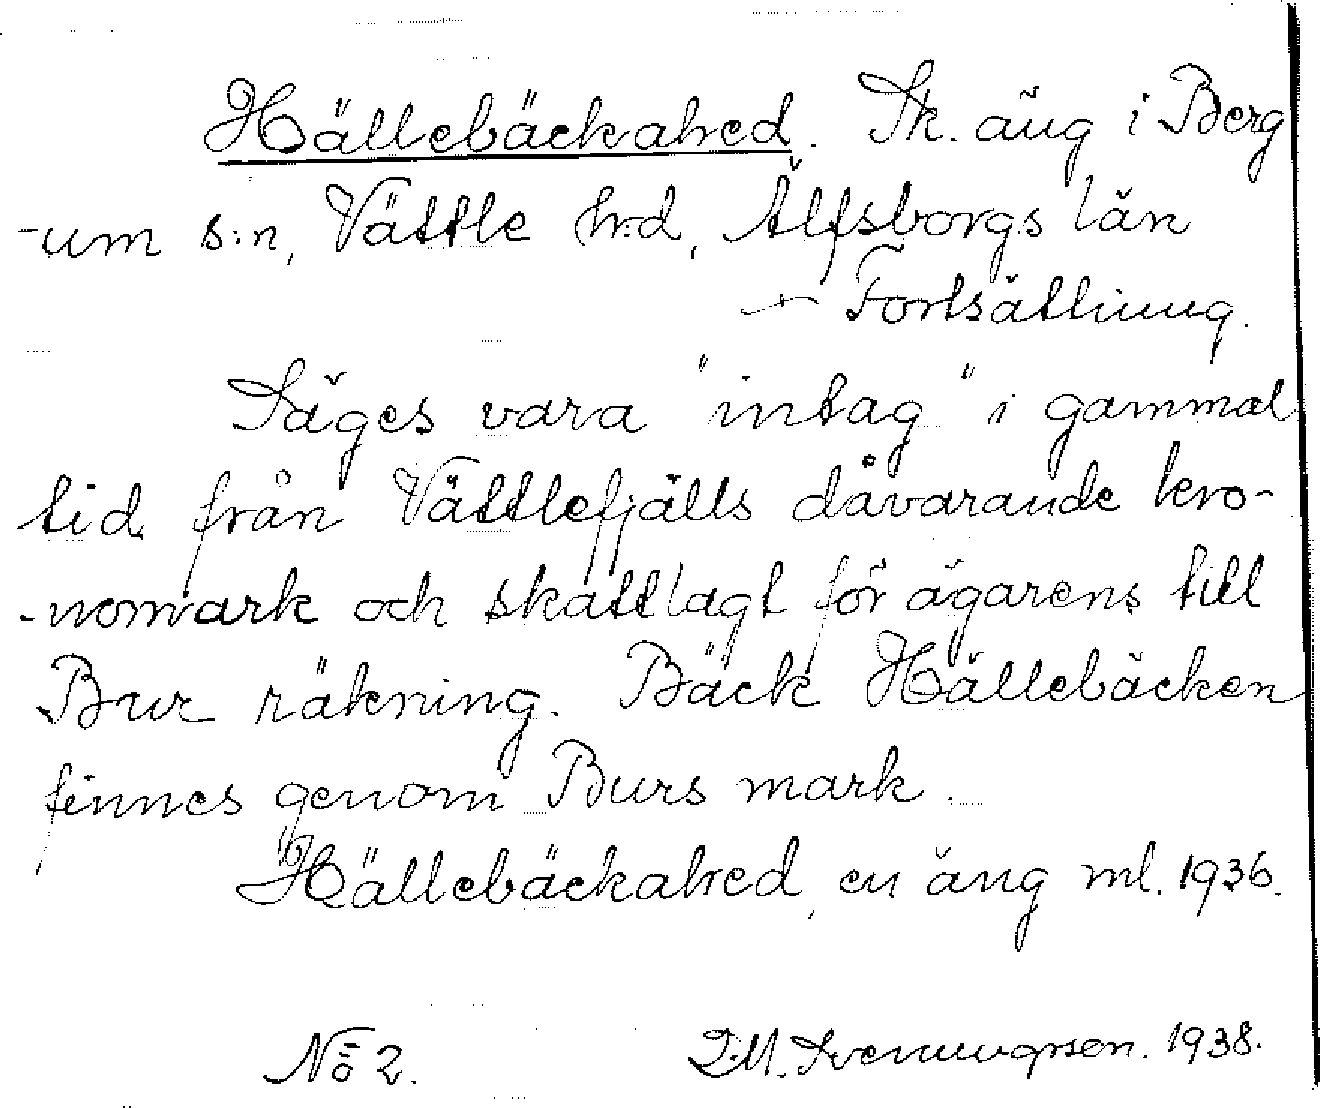 Hällebäckahed. Sk. äng i Berg
-um s:n, Vättle hrd, Älfsborgs län
- Fortsättning.
Säges vara "intag" i gammal
tid från Vättlefjälls dåvarande kro-
-nomark och skattlagt för ägarens till
Bur räkning. Bäck Hällebäcken
finnes genom Burs mark.
Hällebäckahed, en äng ml. 1936.
No 2. Svenungsson. 1938.